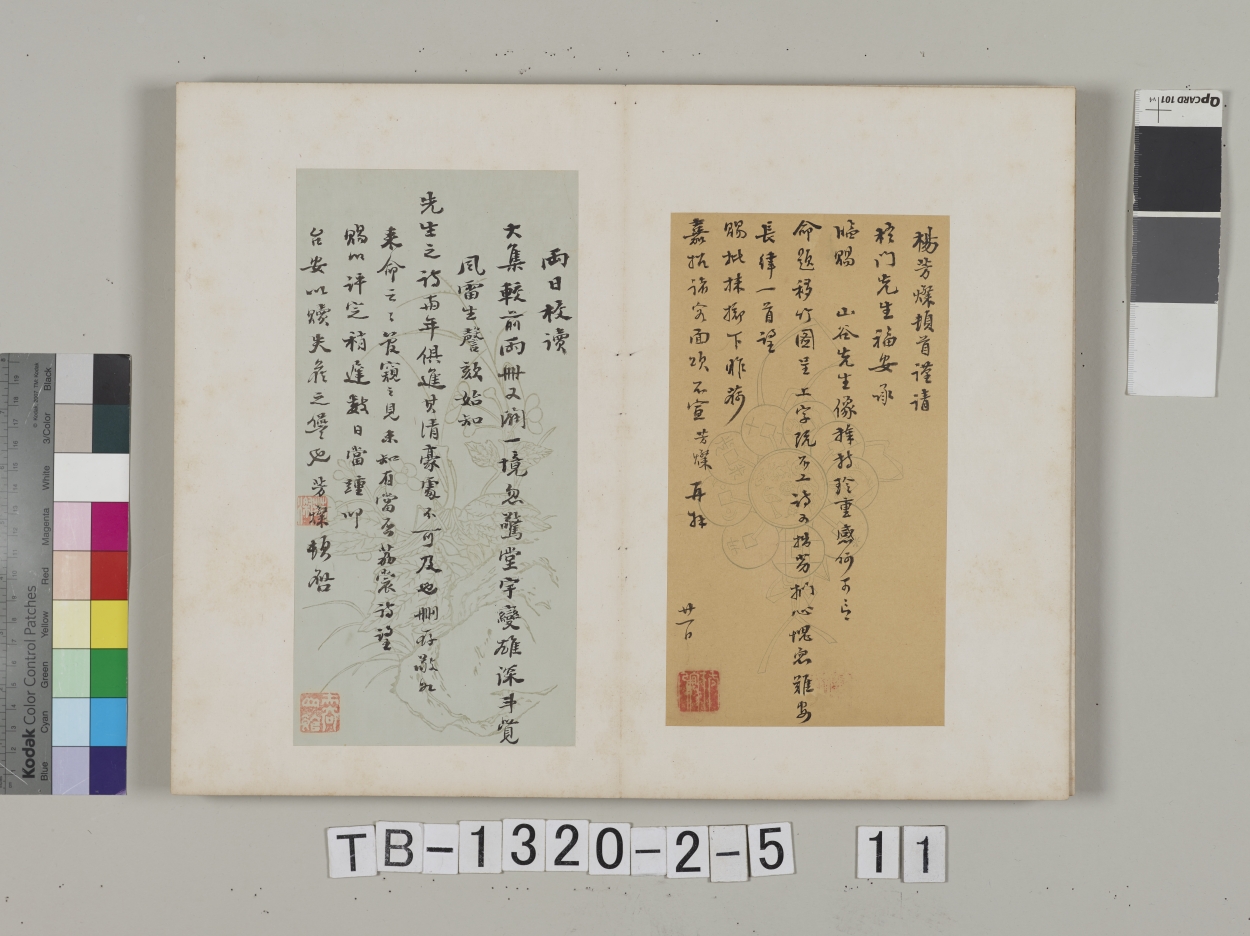 楊芳燦頓首謹請
門先生福安承
賜 山谷先生像 珍重感何可言
命題移竹圖呈 工字既不工詩又 心愧 難安
長律一首望
賜批抹擲下 
嘉招 容面 不宣 芳燦 再拜
廿一日
兩日校讀
大集較前兩冊又闢一境忽驚堂宇變雄深斗覺
風雷生謦欬始知
先生之詩與年俱進其清豪處不可及也刪存敬如
來命之之管窺之見未知有當否荔裳詩望
賜以評定稍遲數日當謹叩
台安以贖失 之愆也 芳燦頓啓
Kodak Color Control Patches
© Kodak, 2007 TM: Kodak
Blue Cyan Green Yellow Red Magenta White 3/Color Black
QPCARD 101
TB-1320-2-5 11